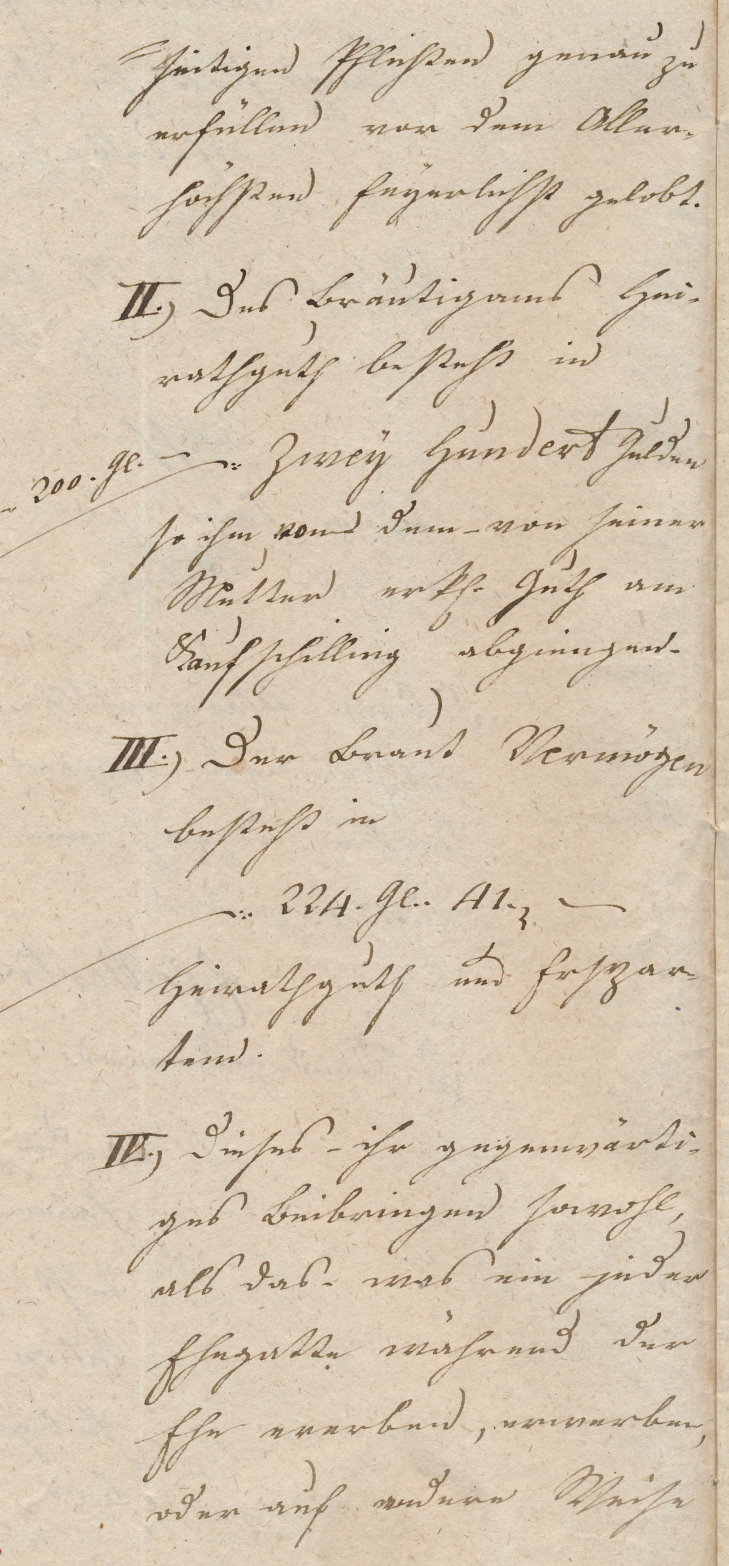 seitigen Pflichten genau zu
erfüllen vor dem Aller-
höchsten feyerlichst gelobt.
II.) Des Bräutigams Hei-
rathguth besteht in
200. Gl. — Zwey Hundert Gulden
so ihm von dem - von seiner
Mutter erkf. Guth am
Kaufschilling abgiengen -
III.) Der Braut Vermögen
besteht in
224. Gl. 41.
Heirathguth und Erspar-
tem.
IV.) Dieses - ihr gegenwärti-
ges Beibringen sowohl,
als das - was ein jeder
Ehegatte während der
Ehe ererben, erwerben,
oder auf andere Weise